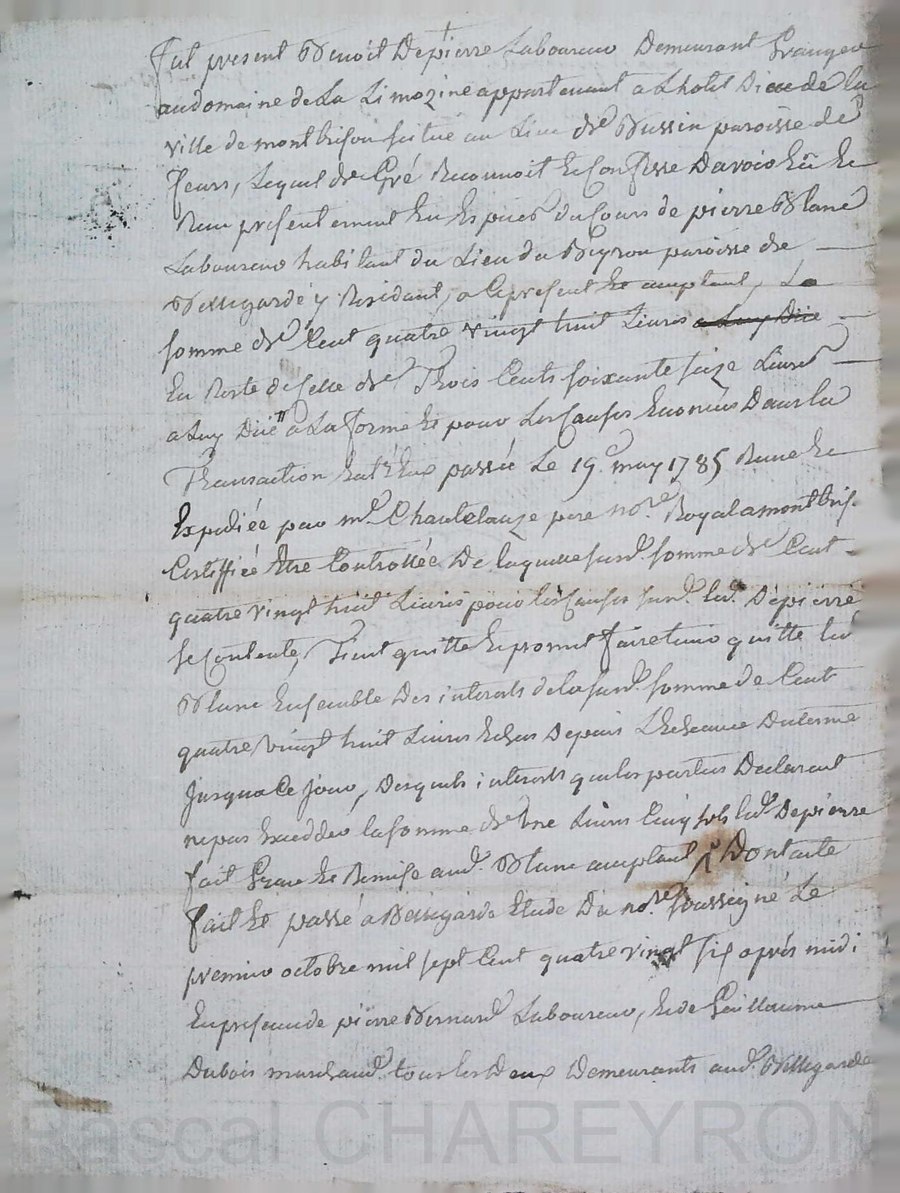 fut present Benoit Depierre Laboureur Demeurant Granger
au domaine de La Limozine appartenant a Lhotel Dieu de la
ville de montbrison scitué au Lieu de Bussin paroisse de
feurs, Lequel de Gré Reconnoit & Confesse Davoir Eü &
Reçu presentement En Espices du cours de pierre Blanc
Laboureur habitant du Lieu du paroisse de
Bellegarde y Residant, a Ce present & acceptant, La
somme de Cent quatre vingt huit Livres a Luy Düe
En Reste de Celle de Trois Cents soixante seize Livres
a Luy Düe a La forme & pour Les Causes Enoncées Dans La
Transaction Entr'Eux passée Le 19e may 1785 Reçue &
Expediée par me Chantelauze pere nore Royal a montbris.
Certiffiée Etre Controllée De laquelle susd. somme de Cent
quatre vingt huit Livres pour les Causes susd. led. Depierre
se Contente, Tient quitte & promet faire tenir quitte led
Blanc Ensemble Des interets de la susd. somme de Cent
quatre vingt huit Livres Echus Depuis LEcheance Du terme
jusqua Ce jour, Desquels interets que les parties Declarent
ne pas Exceder la somme de Livres Cinq sols led. Depierre
fait Grace & Remise aud. Blanc acceptant Dont acte
fait & passé a Bellegarde Etude Du nore soussigné Le
premier octobre mil sept Cent quatre vingt six après midi
En presence de pierre Bernard Laboureur, & de Guillaume
Dubois marchand tous les Deux Demeurants aud. Bellegarde
Pascal CHAREYRON